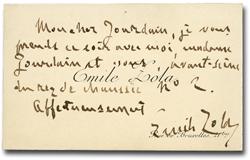 Mon cher Jourdain, je vous
prends ce soir avec moi, madame
Jourdain et vous, avant-scène
Emile Zola
du rez de chaussée No 2.
Affectueusement
Emile Zola
Bruxelles